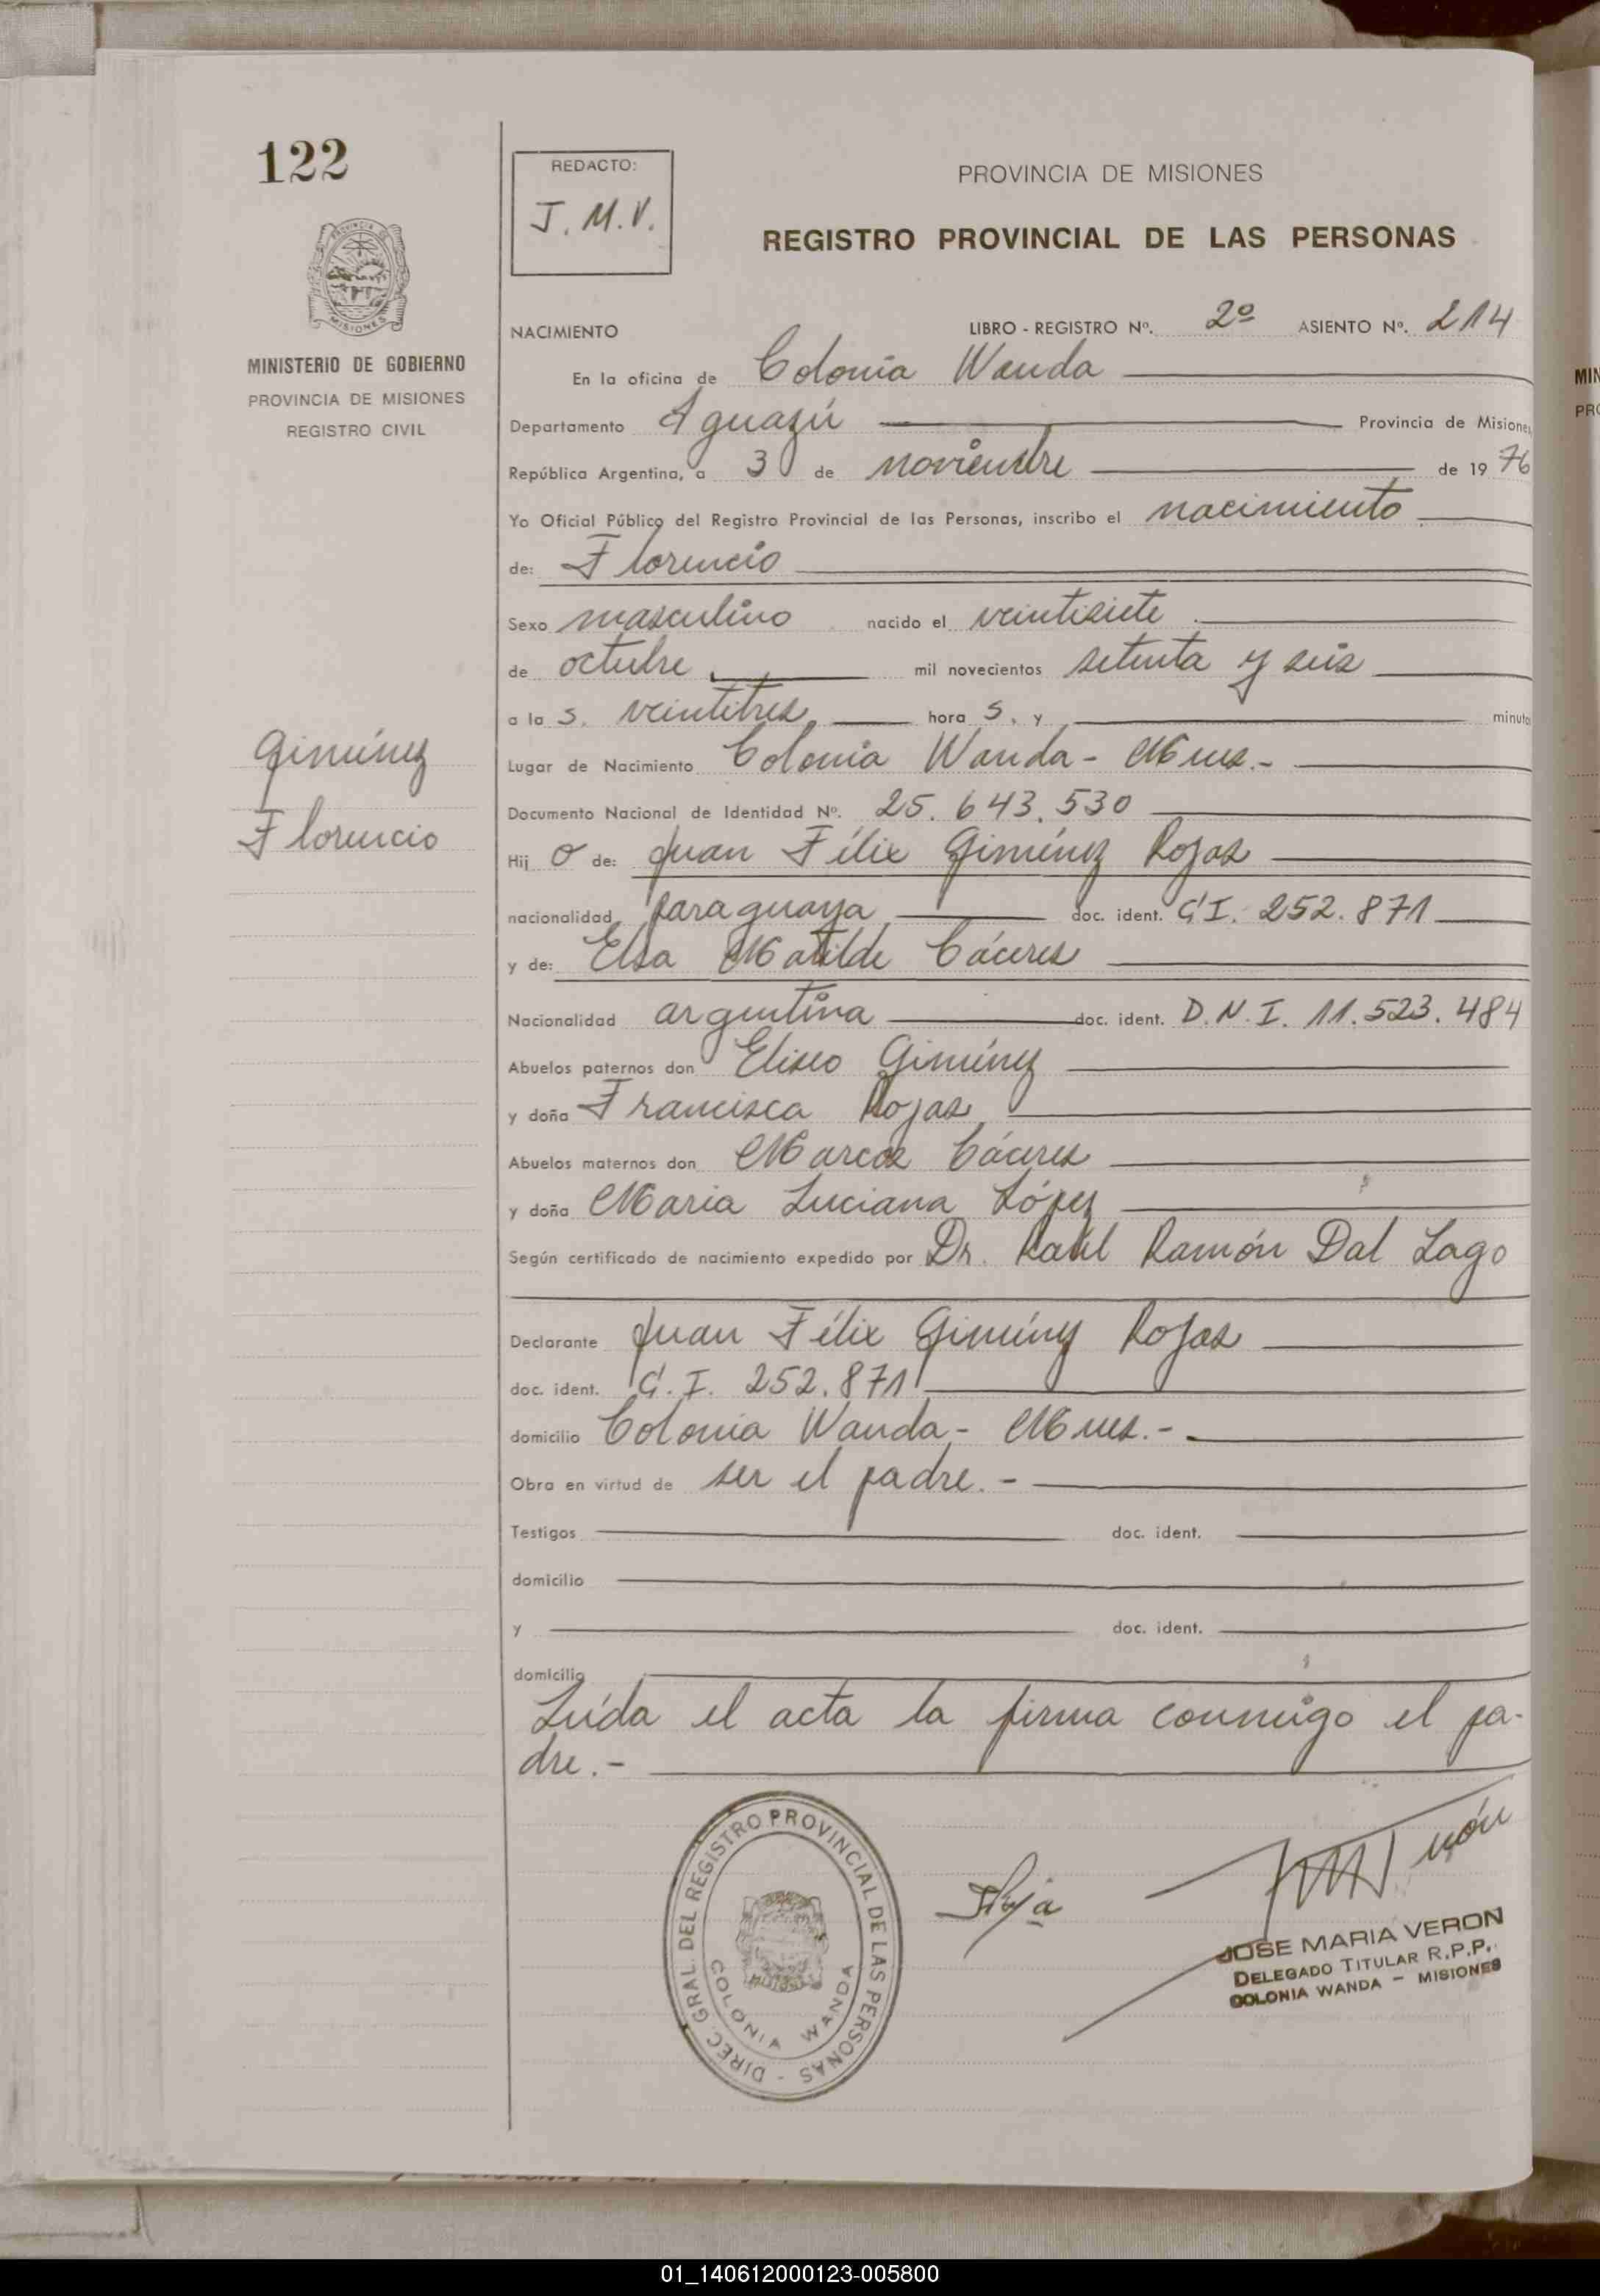 122
REDACTO:
J. M. V.
PROVINCIA DE MISIONES
REGISTRO PROVINCIAL DE LAS PERSONAS
PROVINCIA DE
MISIONES
MINISTERIO DE GOBIERNO
PROVINCIA DE MISIONES
REGISTRO CIVIL
NACIMIENTO LIBRO - REGISTRO Nº. 2º ASIENTO Nº. 214
En la oficina de Colonia Wanda
Departamento Iguazú Provincia de Misiones
República Argentina, a 3 de noviembre de 1976
Yo Oficial Público del Registro Provincial de las Personas, inscribo el nacimiento
de: Florencio
Sexo masculino nacido el veintisiete
de octubre mil novecientos setenta y seis
a la s. veintitres hora s. y minuto
Giménez
Florencio
Lugar de Nacimiento Colonia Wanda - Mnes.-
Documento Nacional de Identidad Nº. 25.643.530
Hij o de: Juan Félix Giménez Rojas
nacionalidad paraguaya doc. ident. C.I. 252.871
y de: Elsa Matilde Cáceres
Nacionalidad argentina doc. ident. D.N.I. 11.523.484
Abuelos paternos don Eliseo Giménez
y doña Francisca Rojas
Abuelos maternos don Marcos Cáceres
y doña Maria Luciana López
Según certificado de nacimiento expedido por Dr. Raúl Ramón Dal Lago
Declarante Juan Félix Giménez Rojas
doc. ident. C.I. 252.871
domicilio Colonia Wanda - Mnes.-
Obra en virtud de ser el padre.-
Testigos doc. ident.
domicilio
y doc. ident.
domicilio
Leída el acta la firma conmigo el pa-
dre.-
DIREC. GRAL. DEL REGISTRO PROVINCIAL DE LAS PERSONAS -
COLONIA WANDA
MISIONES
JOSE MARIA VERON
DELEGADO TITULAR R.P.P.
COLONIA WANDA - MISIONES
MIN
PRO
01_140612000123-005800